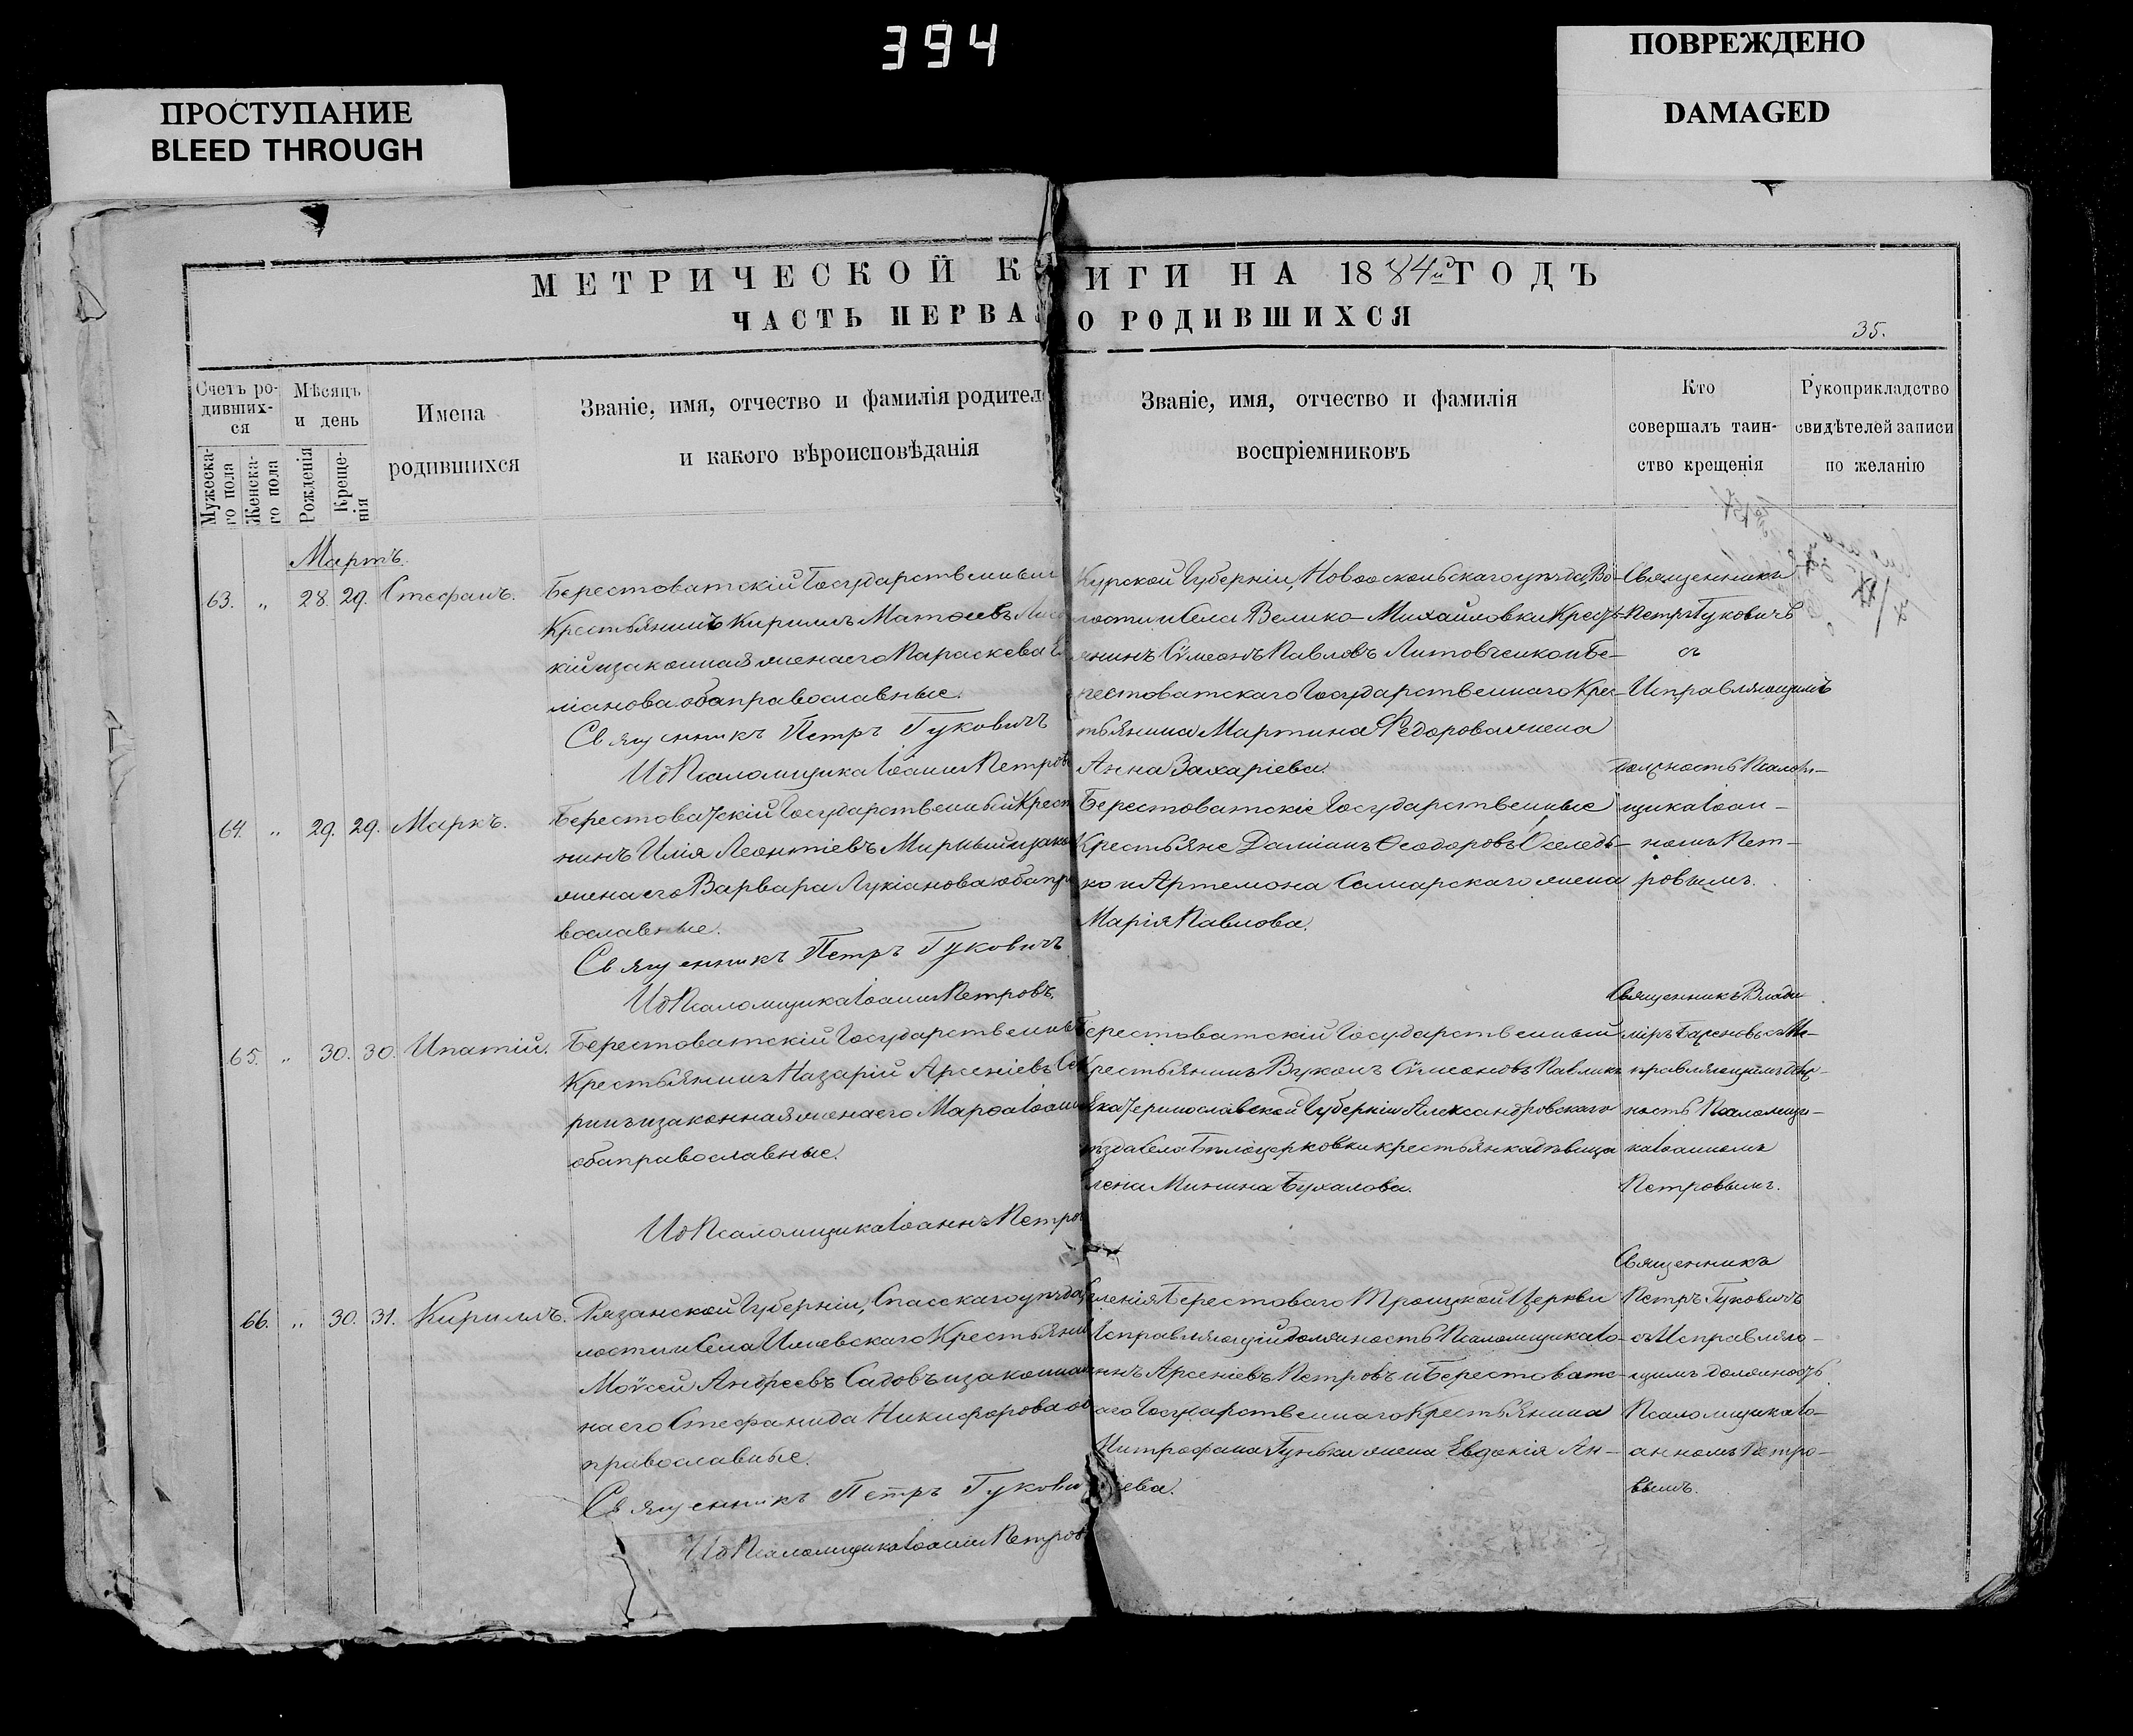 394
ПРОСТУПАНИЕ
BLEED THROUGH
ПОВРЕЖДЕНО
DAMAGED
МЕТРИЧЕСКОЙ К ИГИ НА 1884й ГОДЪ
ЧАСТЬ ПЕРВАЯ О РОДИВШИХСЯ
35.
Счетъ ро-
дивших-
ся
Мужеска-
го пола
Женска-
го пола
Мѣсяцъ
и день
Рожденія
Креще-
нія
Имена
родившихся
Званіе, имя, отчество и фамилія родител
и какого вѣроисповѣданія
Званіе, имя, отчество и фамилія
воспріемниковъ
Кто
совершалъ таин-
ство крещенія
Рукоприкладство
свидѣтелей записи
по желанію
Мартъ.
63. „ 28. 29. Стефанъ.
Берестоватскій Государственный
Крестьянинъ Кириллъ Матѳеевъ
кій и законная жена его Параскева
ліанова оба православные.
Священникъ Петръ Гуковичъ
И д Псаломщика Іоаннъ Петровъ
Курской Губерніи, Новооскольскаго уѣзда, Во-
лости и Села Велико-Михайловки Кресть-
янинъ Сѵмеонъ Павловъ Литовченко и Бе-
рестоватскаго Государственнаго Крес-
тьянина Мартина Ѳедорова жена
Анна Захаріева.
Священникъ
Петръ Гуковичъ
съ
Исправляющимъ
должность Псалом-
щика Іоан-
номъ Пет-
ровымъ.
64. „ 29. 29. Маркъ.
Берестоватскій Государственный Крест
нинъ Илія Леонтіевъ Мирный и закон
жена его Варвара Лукіанова оба пра
вославные.
Священникъ Петръ Гуковичъ
И д Псаломщика Іоаннъ Петровъ.
Берестоватскіе Государственные
Крестьяне Даміанъ Ѳеодоровъ Оселедь-
ко и Артемона Самарскаго жена
Марія Павлова.
65. „ 30. 30. Ипатій.
Берестоватскій Государственны
Крестьянинъ Назарій Арсеніевъ
ринъ и законная жена его Марѳа Іоанн
оба православные.
И д Псаломщика Іоаннъ Петров
Берестоватскій Государственный
Крестьянинъ Вуколъ Сѵмеоновъ Павликъ
Екатеринославской Губерніи Александровскаго
уѣзда Села Бѣлоцерковки крестьянка дѣвица
Елена Минина Бухалова.
Священникъ Влади
міръ Баженовъ съ Ис-
правляющимъ долж-
ность Псаломщи-
ка Іоанномъ
Петровымъ.
66. „ 30. 31. Кириллъ.
Рязанской Губерніи, Спасскаго уѣзда,
лости и Села Ижевскаго Крестьянин
Моѵсей Андреевъ Садовъ и законная
на его Стефанида Никифорова об
православные.
Священникъ Петръ Гукови
И д Псаломщика Іоаннъ Петров
Селенія Берестоваго Троицкой Церкви
Исправляющій должность Псаломщика Іо-
аннъ Арсеніевъ Петровъ и Берестоватс-
каго Государственнаго Крестьянина
Митрофана Гуньки жена Евдокія Ан-
еева.
Священникъ
Петръ Гуковичъ
съ Исправляю-
щимъ должность
Псаломщика Іо-
анномъ Петро-
вымъ.